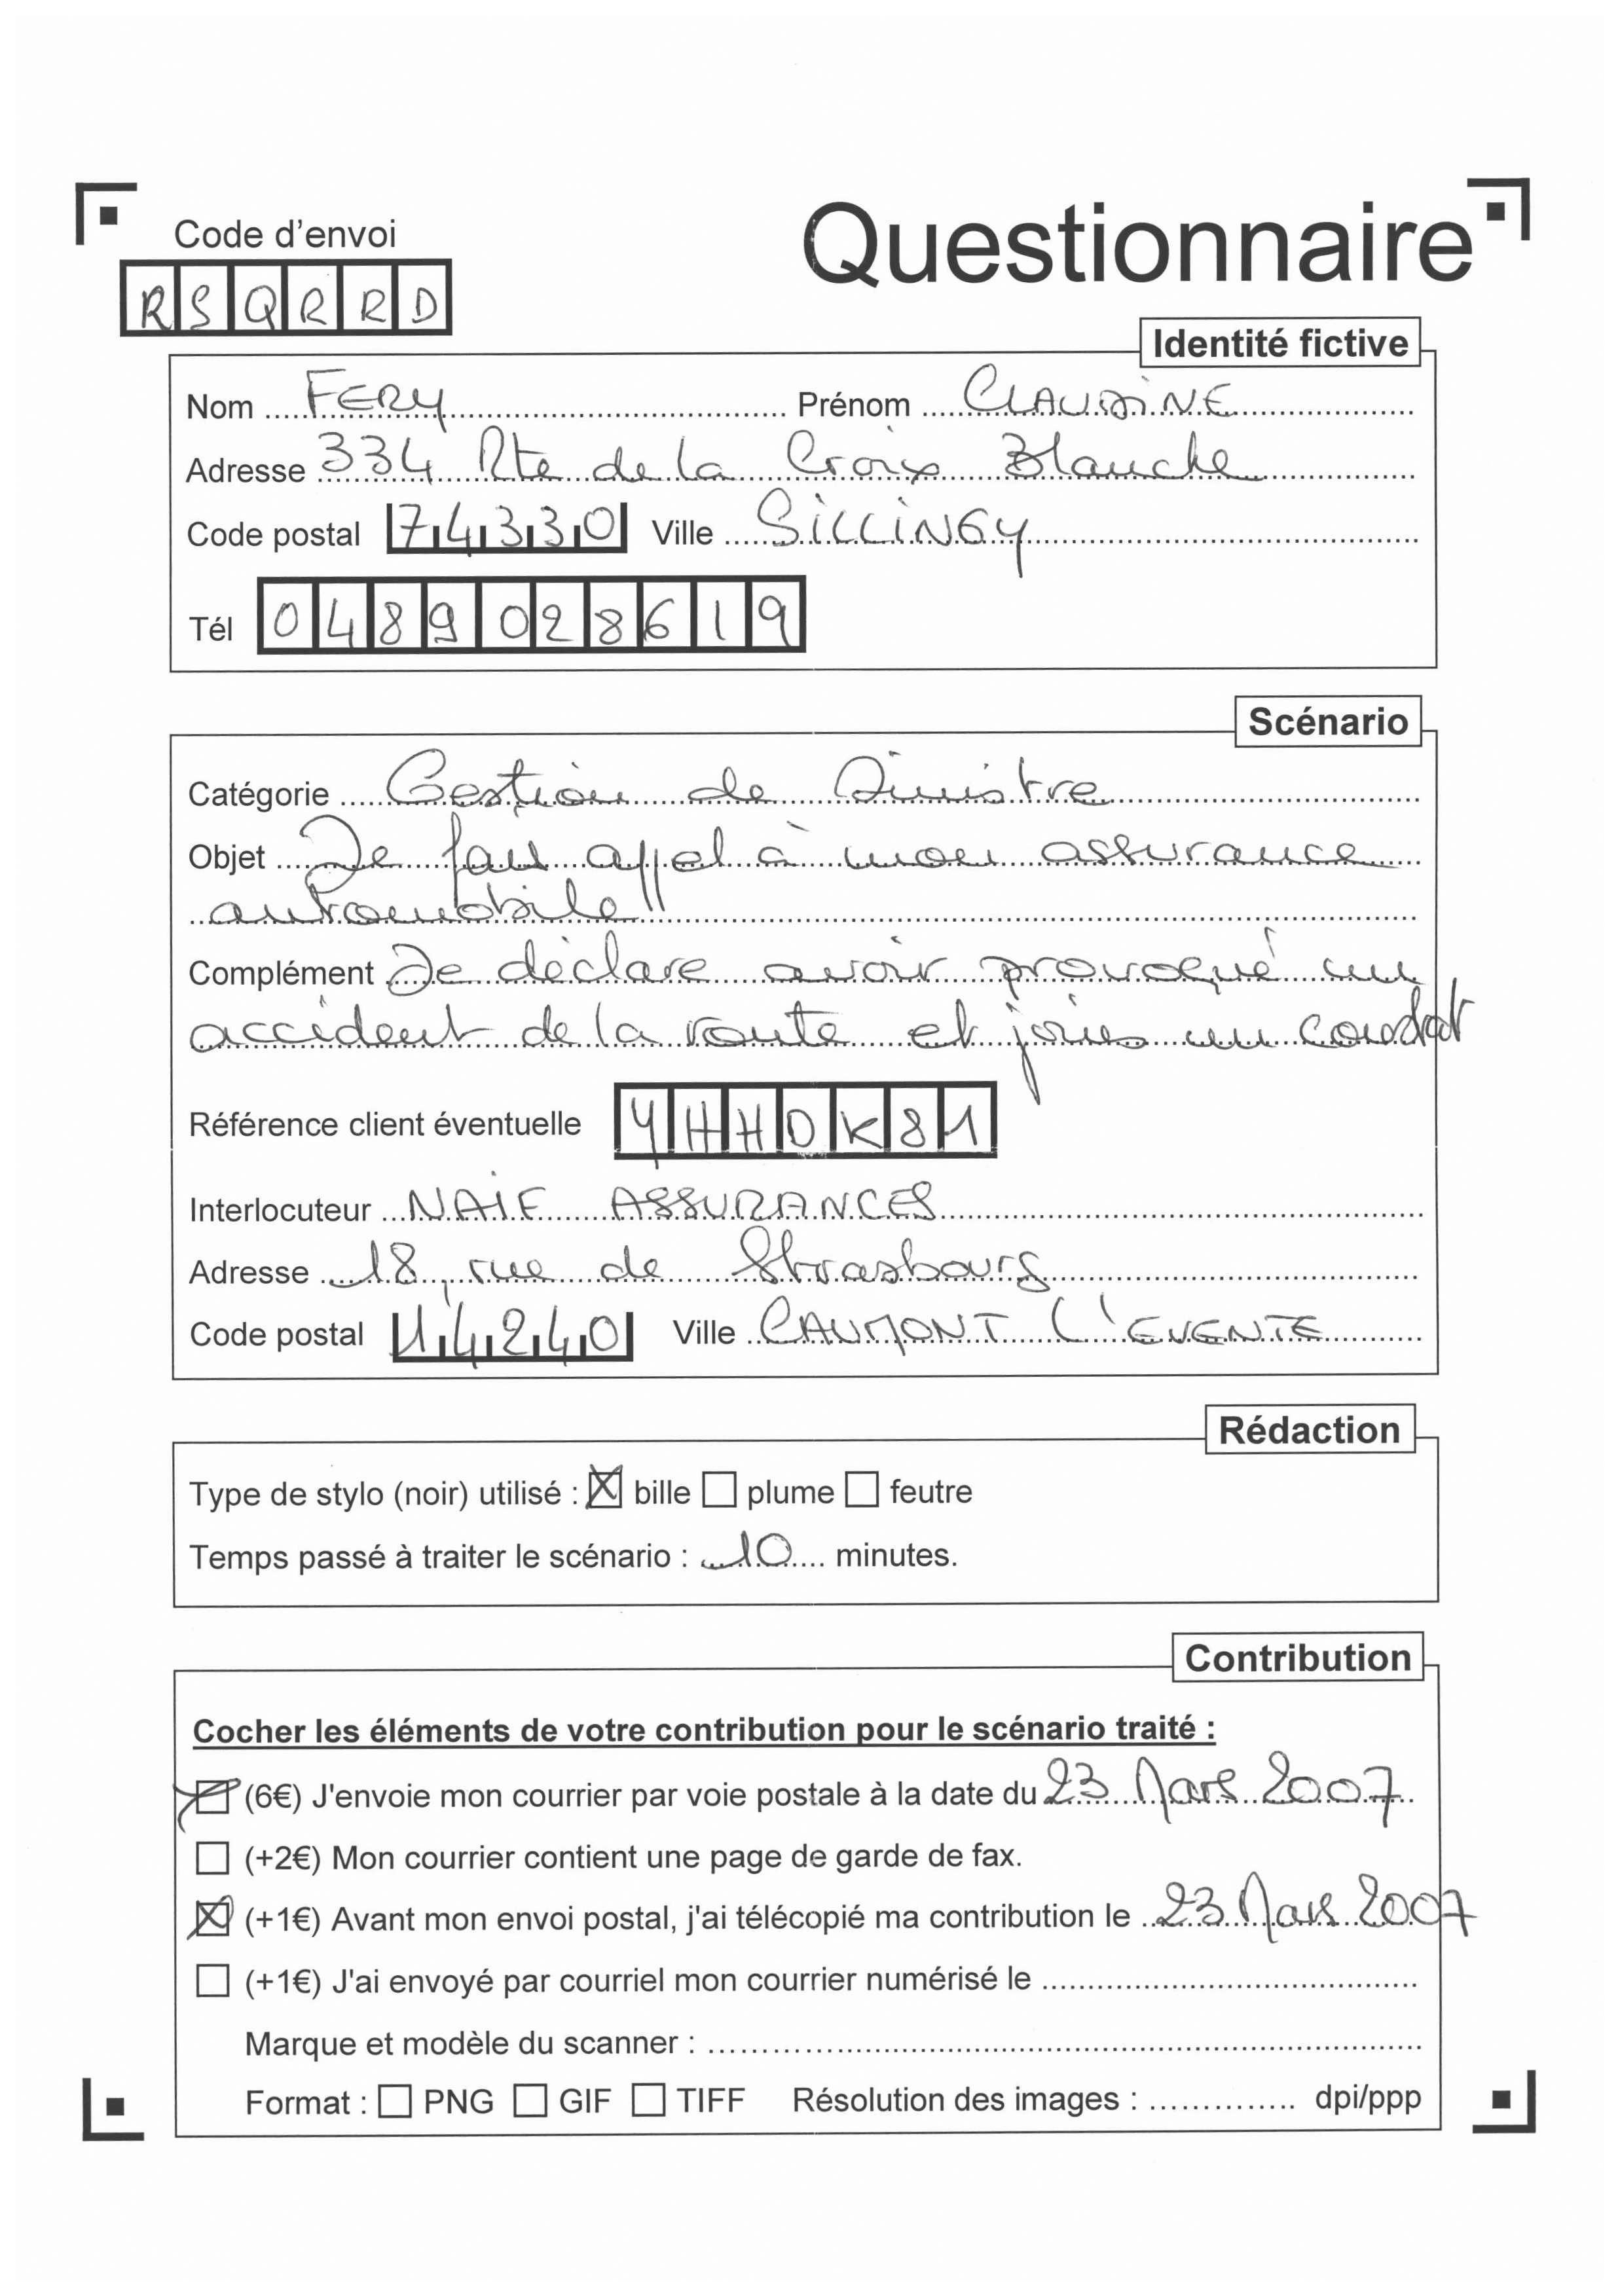 Code d'envoi
Questionnaire
RSQRRD
Identité fictive
Nom FERY Prénom CLAUDINE
Adresse 334 Rte de la Croix Blanche
Code postal 74330 Ville SILLINGY
Tél 0489028619
Scénario
Catégorie Gestion de Sinistre
Objet Je fais appel à mon assurance
automobile
Complément Je déclare avoir provoqué un
accident de la route et joins un constat
Référence client éventuelle YHHDK81
Interlocuteur NAIF ASSURANCES
Adresse 18, rue de Strasbourg
Code postal 14240 Ville CAUMONT L'EVENTE
Rédaction
Type de stylo (noir) utilisé : bille plume feutre
Temps passé à traiter le scénario : 10 minutes.
Contribution
Cocher les éléments de votre contribution pour le scénario traité :
(6€) J'envoie mon courrier par voie postale à la date du 23 Mars 2007
(+2€) Mon courrier contient une page de garde de fax.
(+1€) Avant mon envoi postal, j'ai télécopié ma contribution le 23 Mars 2007
(+1€) J'ai envoyé par courriel mon courrier numérisé le
Marque et modèle du scanner :
Format : PNG GIF TIFF Résolution des images : dpi/ppp